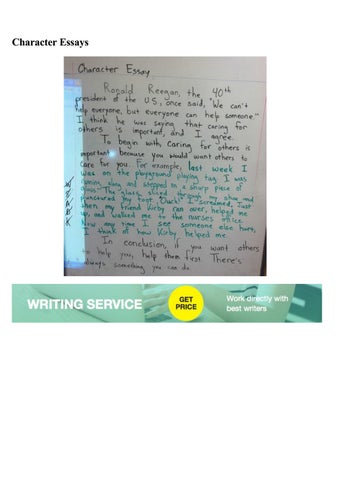 Character Essays
Character Essay
Ronald Reegan, the 40th
president of the U.S, once said, "We can't
help everyone, but everyone can help someone."
I think he was saying that caring for
others is important, and I agree.
To begin with, Caring for others is
important because you would want others to
care for you. For example, last week I
was on the playground playing tag. I was
running along and stepped on a sharp piece of
glass. The glass sliced through my shoe and
punctured my foot. Ouch! I screamed. Just
then my friend Kirby ran over, helped me
up, and walked me to the nurses office.
Now any time I see someone else hurt,
I think of how Kirby helped me.
In conclusion, if you want others
to help you, help them first. There's
always something you can do.
WRITING SERVICE
GET
PRICE
Work directly with
best writers